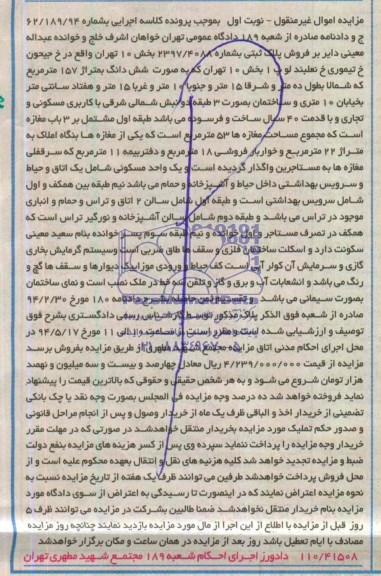 مزایده اموال غیرمنقول - نوبت اول بموجب پرونده کلاسه اجرایی بشماره ۶۲/۱۸۹/۹۴
ج و دادنامه صادره از شعبه ۱۸۹ دادگاه عمومی تهران خواهان اشرف خلج و خوانده عبداله
معینی دایر بر فروش پلاک ثبتی بشماره ۲۳۹۷/۴۰۸۸ بخش ۱۰ تهران واقع در خ جیحون
خ تیموری خ نعلبند لو پ ۱ بخش ۱۰ تهران که به صورت شش دانگ بمتراژ ۱۵۷ مترمربع
که شمالا بطول ده متر و شرقا ۱۵ متر و جنوبا ۱۰ متر و غربا ۱۵ متر و هفتاد سانتی متر
بخیابان ۱۰ متری و ساختمان بصورت ۳ طبقه دو نبش شمالی شرقی با کاربری مسکونی و
تجاری و با قدمت ۴۰ سال ساخت و فرسوده می باشد طبقه اول مشتمل بر ۳ باب مغازه
است که مجموع مساحت مغازه ها ۵۳ مترمربع است که یکی از مغازه ها بنگاه املاک به
متراژ ۲۲ مترمربع و خواربار فروشی ۱۸ مترمربع و دفتربیمه ۱۱ مترمربع که سرقفلی
مغازه ها به مستاجرین واگذار گردیده است و یک واحد مسکونی شامل یک اتاق و حیاط
و سرویس بهداشتی داخل حیاط و آشپزخانه و حمام می باشد نیم طبقه بین همکف و اول
شامل سرویس بهداشتی است و طبقه اول شامل سالن ۲ اتاق و تراس و حمام و انباری
موجود در تراس می باشد و طبقه دوم شامل سالن آشپزخانه و نورگیر تراس است که
همکف در تصرف مستاجر و اول خوانده و نیم طبقه سوم پسر خوانده بنام سعید معینی
سکونت دارد و اسکلت ساختمان فلزی و سقف ها طاق ضربی است وسیستم گرمایش بخاری
گازی و سرمایش آن کولر آبی است کف حیاط و ورودی موزاییک دیوارها و سقف ها گچ و
رنگ می باشد و انشعابات آب و برق و گاز و تلفن سه خط در ملک نصب است و نمای ساختمان
بصورت سیمانی می باشد و بشرح دادنامه ۱۸۰ مورخ ۹۴/۲/۳۰
صادره از شعبه فوق الذکر پلاک مذکور توسط کارشناس رسمی دادگستری بشرح فوق
توصیف و ارزشیابی شده است و مقرر است از ساعت ۱۰ الی ۱۱ مورخ ۹۴/۵/۱۷ در
محل اجرای احکام مدنی اتاق مزایده مجتمع شهید مطهری از طریق مزایده بفروش برسد
مزایده از قیمت ۴/۲۳۹/۰۰۰/۰۰۰ ریال معادل چهارصد و بیست و سه میلیون و نهصد
هزار تومان شروع می شود و به هر شخص حقیقی و حقوقی که بالاترین قیمت را پیشنهاد
نماید فروخته خواهد شد ده درصد وجه مزایده فی المجلس بصورت وجه نقد یا چک بانکی
تضمینی از خریدار اخذ و الباقی ظرف یک ماه از خریدار وصول و پس از انجام مراحل قانونی
و صدور حکم تملیک مورد مزایده بخریدار منتقل خواهدشد در صورتی که در مهلت مقرر
خریدار وجه مزایده را پرداخت ننماید سپرده وی پس از کسر هزینه های مزایده بنفع دولت
ضبط و مزایده تجدید خواهد شد کلیه هزنیه های نقل و انتقال بعهده محکوم علیه است و از
محل فروش پرداخت خواهدشد طرفین می توانند ظرف یک هفته از تاریخ مزایده نسبت به
نحوه مزایده اعتراض نمایند که در اینصورت تا رسیدگی به اعتراض از سوی دادگاه مورد
مزایده بنام خریدار منتقل نخواهدشد ضمنا طالبین بشرکت در مزایده می توانند ظرف ۵
روز قبل از مزایده با اطلاع از این اجرا از مال مورد مزایده بازدید نمایند چنانچه روز مزایده
مصادف با ایام تعطیل باشد روز بعد از مزایده در همان ساعت و مکان برگزار خواهدشد
۱۱۰/۴۱۵۰۸ دادورز اجرای احکام شعبه ۱۸۹ مجتمع شهید مطهری تهران